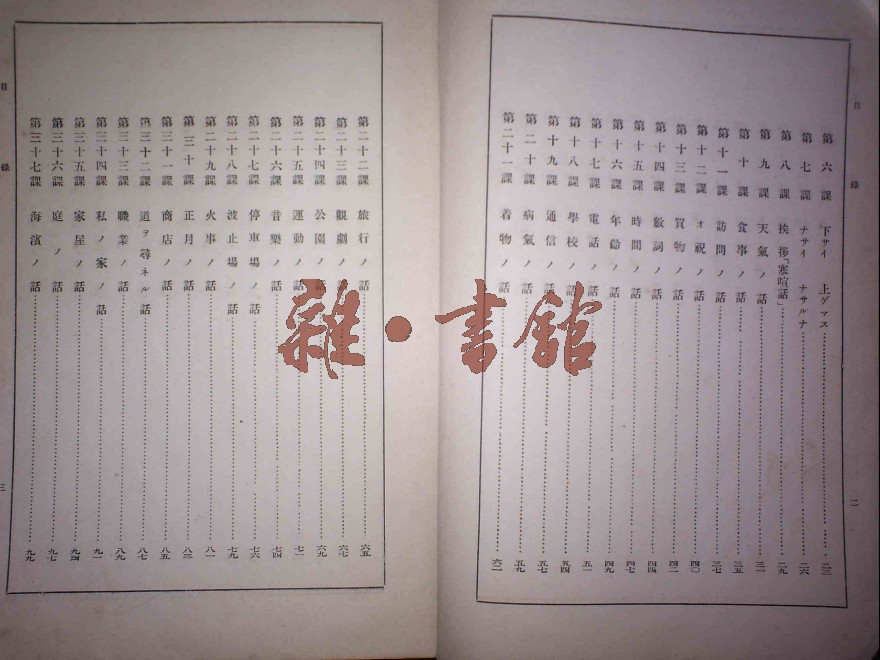 目錄
第六課 下サイ 上ゲマス 二三
第七課 ナサイ ナサルナ 二六
第八課 挨拶「寒喧話」 二九
第九課 天氣ノ話 三一
第十課 食事ノ話 三五
第十一課 訪問ノ話 三七
第十二課 オ祝ノ話 四〇
第十三課 買物ノ話 四二
第十四課 數詞ノ話 四四
第十五課 時間ノ話 四七
第十六課 年齡ノ話 四九
第十七課 電話ノ話 五一
第十八課 學校ノ話 五四
第十九課 通信ノ話 五七
第二十課 病氣ノ話 五九
第二十一課 着物ノ話
二
第二十二課 旅行ノ話 六五
第二十三課 觀劇ノ話 六七
第二十四課 公園ノ話 六九
第二十五課 運動ノ話
第二十六課 音樂ノ話 七四
第二十七課 停車場ノ話 七六
第二十八課 波止場ノ話 七九
第二十九課 火事ノ話 八一
第三十課 正月ノ話 八三
第三十一課 商店ノ話 八五
第三十二課 道ヲ尋ネル話 八七
第三十三課 職業ノ話 八九
第三十四課 私ノ家ノ話 九一
第三十五課 家屋ノ話 九四
第三十六課 庭ノ話 九七
第三十七課 海濱ノ話 九九
目錄
三
雜·書館